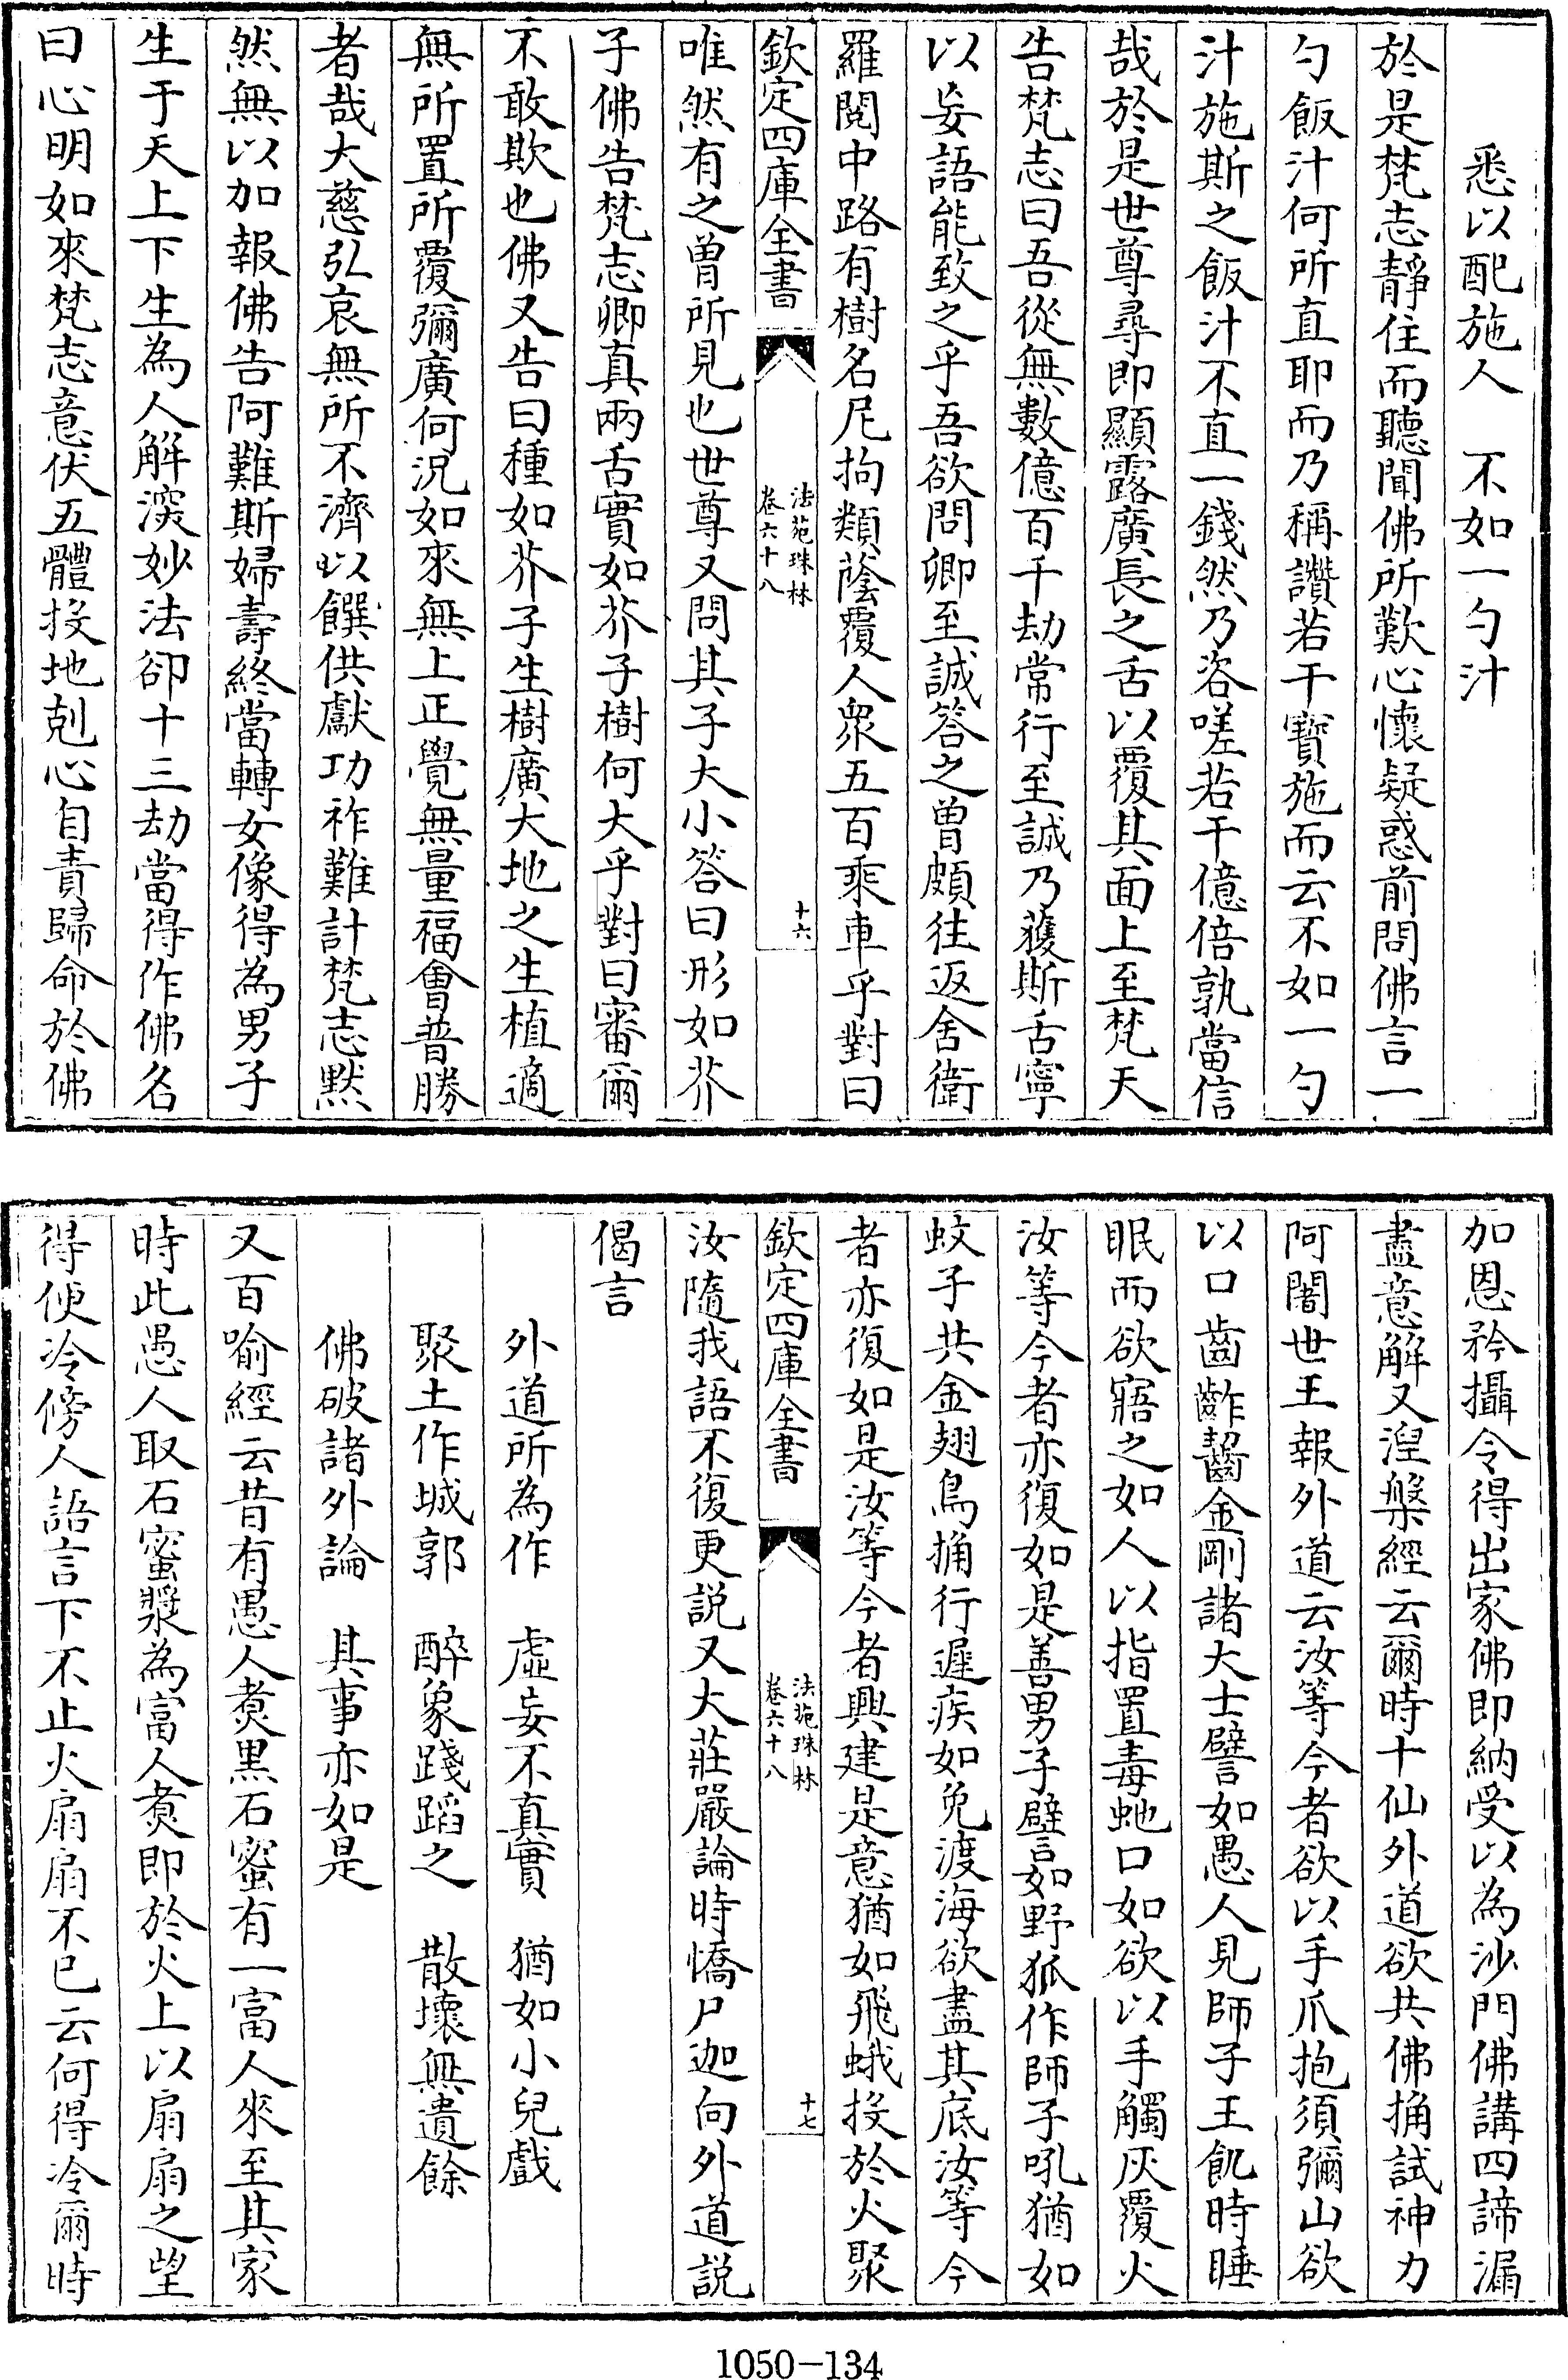 悉以配施人　不如一勺汁
於是梵志靜住而聽聞佛所歎心懷疑惑前問佛言一
勺飯汁何所直耶而乃稱讚若干寳施而云不如一勺
汁施斯之飯汁不直一錢然乃咨嗟若干億倍孰當信
哉於是世尊尋即顯露廣長之舌以覆其面上至梵天
告梵志曰吾從無數億百千劫常行至誠乃獲斯舌寧
以妄語能致之乎吾欲問卿至誠答之曽頗往返舍衛
羅閱中路有樹名尼拘類蔭覆人衆五百乘車乎對曰
欽定四庫全書
法苑珠林
卷六十八
十六
唯然有之曽所見也世尊又問其子大小答曰形如芥
子佛告梵志卿真兩舌實如芥子樹何大乎對曰審爾
不敢欺也佛又告曰種如芥子生樹廣大地之生植適
無所置所覆彌廣何況如來無上正覺無量福會普勝
者哉大慈弘哀無所不濟以饌供獻功祚難計梵志黙
然無以加報佛告阿難斯婦壽終當轉女像得為男子
生于天上下生為人解深妙法卻十三劫當得作佛名
曰心明如來梵志意伏五體投地剋心自責歸命於佛
加恩矜攝令得出家佛即納受以為沙門佛講四諦漏
盡意解又湼槃經云爾時十仙外道欲共佛捔試神力
阿闍世王報外道云汝等今者欲以手爪抱須彌山欲
以口齒齚齧金剛諸大士譬如愚人見師子王飢時睡
眠而欲寤之如人以指置毒虵口如欲以手觸灰覆火
汝等今者亦復如是善男子譬如野狐作師子吼猶如
蚊子共金翅鳥捔行遲疾如兔渡海欲盡其底汝等今
者亦復如是汝等今者興建是意猶如飛蛾投於火聚
欽定四庫全書
法苑珠林
卷六十八
十七
汝隨我語不復更説又大莊嚴論時憍尸迦向外道説
偈言
外道所為作　虛妄不真實　猶如小兒戲
聚土作城郭　醉象踐蹈之　散壞無遺餘
佛破諸外論　其事亦如是
又百喻經云昔有愚人煑黒石蜜有一富人來至其家
時此愚人取石蜜漿為富人煑即於火上以扇扇之望
得使冷傍人語言下不止火扇扇不已云何得冷爾時
1050-134